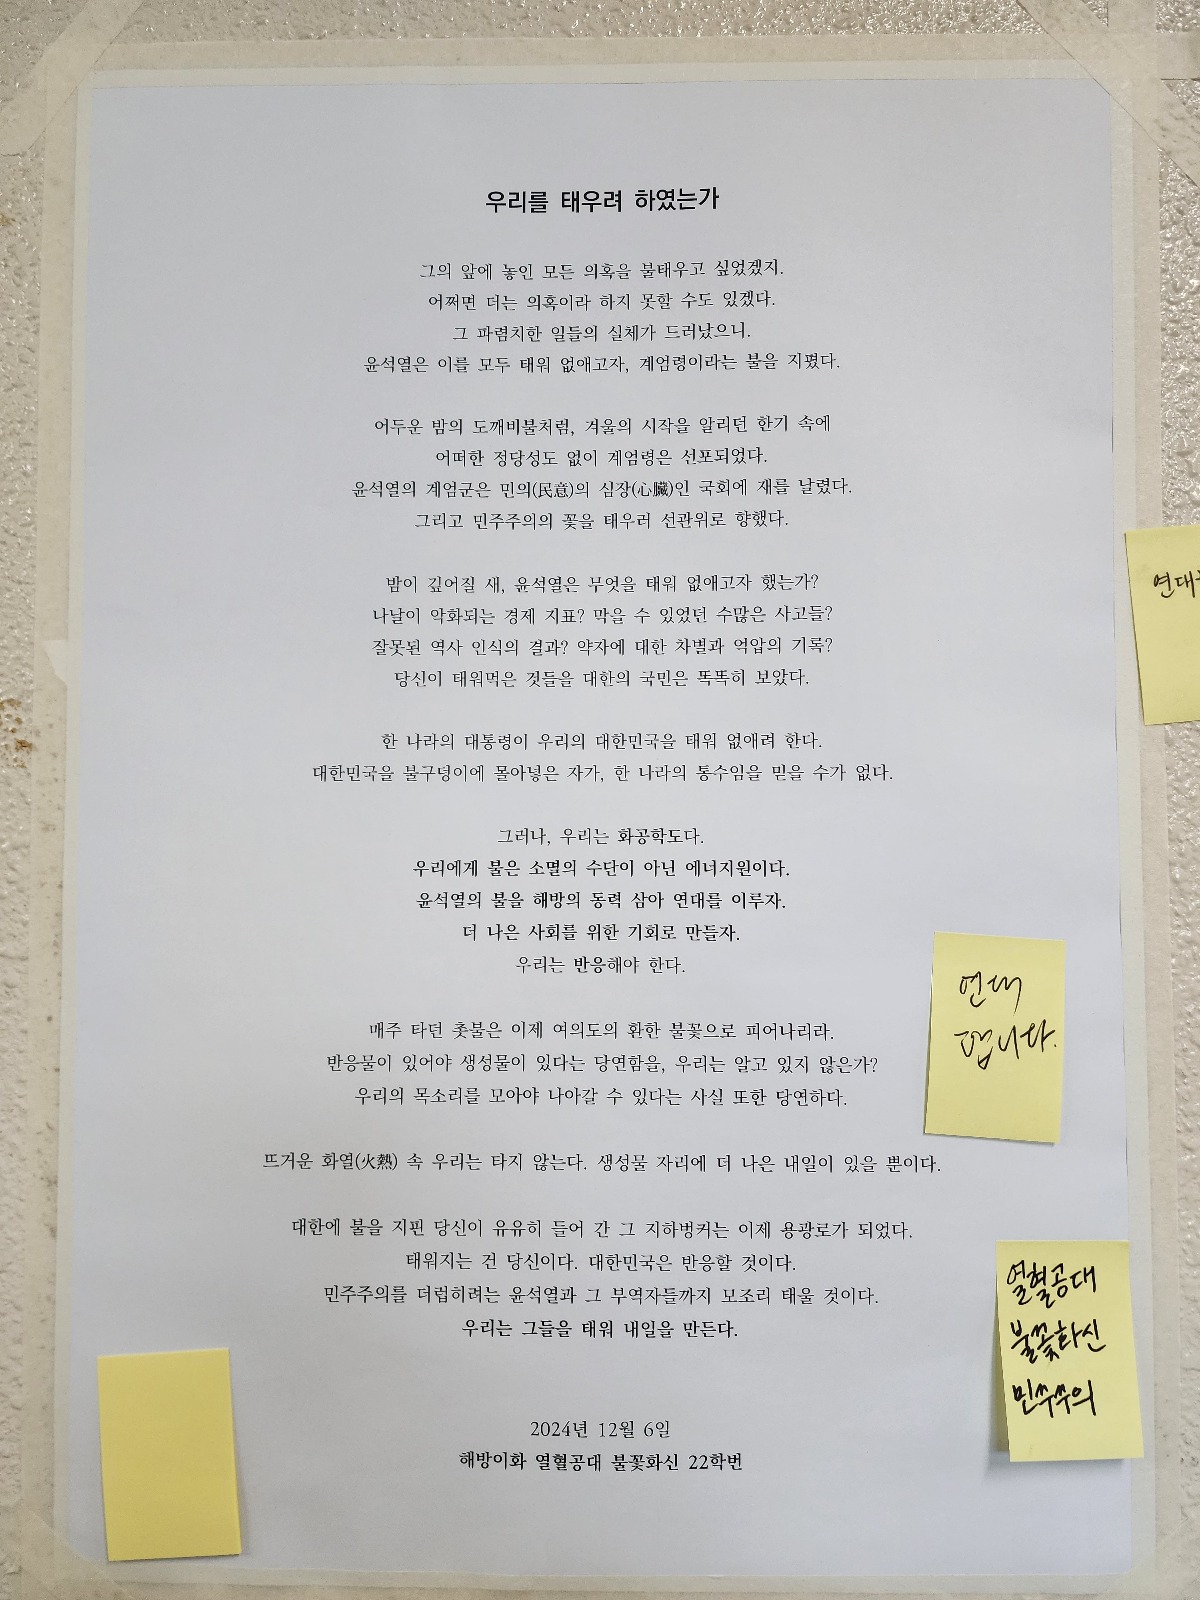 우리를 태우려 하였는가
그의 앞에 놓인 모든 의혹을 불태우고 싶었겠지.
어쩌면 더는 의혹이라 하지 못할 수도 있겠다.
그 파렴치한 일들의 실체가 드러났으니.
윤석열은 이를 모두 태워 없애고자, 계엄령이라는 불을 지폈다.
어두운 밤의 도깨비불처럼, 겨울의 시작을 알리던 한기 속에
어떠한 정당성도 없이 계엄령은 선포되었다.
윤석열의 계엄군은 민의(民意)의 심장(心臟)인 국회에 재를 날렸다.
그리고 민주주의의 꽃을 태우러 선관위로 향했다.
밤이 깊어질 새, 윤석열은 무엇을 태워 없애고자 했는가?
나날이 악화되는 경제 지표? 막을 수 있었던 수많은 사고들?
잘못된 역사 인식의 결과? 약자에 대한 차별과 억압의 기록?
당신이 태워먹은 것들을 대한의 국민은 똑똑히 보았다.
한 나라의 대통령이 우리의 대한민국을 태워 없애려 한다.
대한민국을 불구덩이에 몰아넣은 자가, 한 나라의 통수임을 믿을 수가 없다.
그러나, 우리는 화공학도다.
우리에게 불은 소멸의 수단이 아닌 에너지원이다.
윤석열의 불을 해방의 동력 삼아 연대를 이루자.
더 나은 사회를 위한 기회로 만들자.
우리는 반응해야 한다.
매주 타던 촛불은 이제 여의도의 환한 불꽃으로 피어나리라.
반응물이 있어야 생성물이 있다는 당연함을, 우리는 알고 있지 않은가?
우리의 목소리를 모아야 나아갈 수 있다는 사실 또한 당연하다.
뜨거운 화열(火熱) 속 우리는 타지 않는다. 생성물 자리에 더 나은 내일이 있을 뿐이다.
대한에 불을 지핀 당신이 유유히 들어 간 그 지하벙커는 이제 용광로가 되었다.
태워지는 건 당신이다. 대한민국은 반응할 것이다.
민주주의를 더럽히려는 윤석열과 그 부역자들까지 모조리 태울 것이다.
우리는 그들을 태워 내일을 만든다.
2024년 12월 6일
해방이화 열혈공대 불꽃화신 22학번
연대
연대
합니다.
열혈공대
불꽃화신
민쭈쭈의